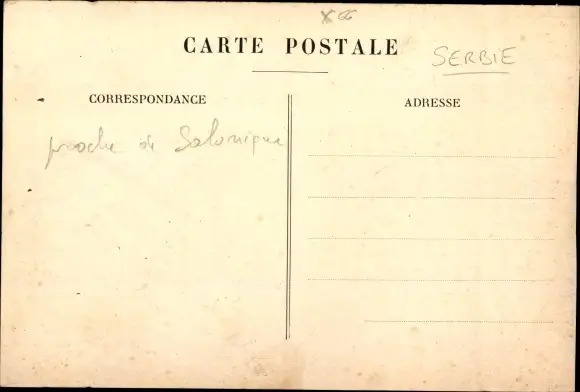 CARTE POSTALE
SERBIE
CORRESPONDANCE
ADRESSE
proche de Salonique